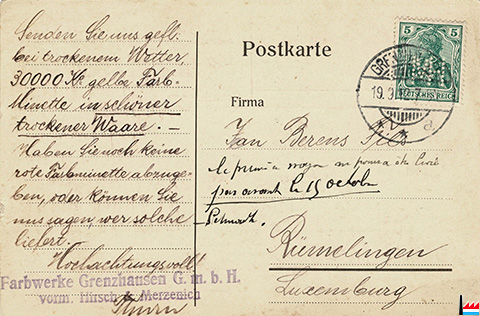 Senden Sie uns gefl.
bei trockenem Wetter
30000 Ko gelbe Farb
Minette in schöner
trockener Waare. —
Haben Sie noch keine
rote Farbminette abzuge-
ben, oder können Sie
uns sagen, wer solche
liefert.
Hochachtungsvoll
Farbwerke Grenzhausen G. m. b. H.
vorm. Hirsch & Merzenich
Postkarte
5 5
DEUTSCHES REICH
19. 9.
Firma
Jan Berens
le premier wagon
pas avant le 15 octobre
Rümelingen
Luxemburg